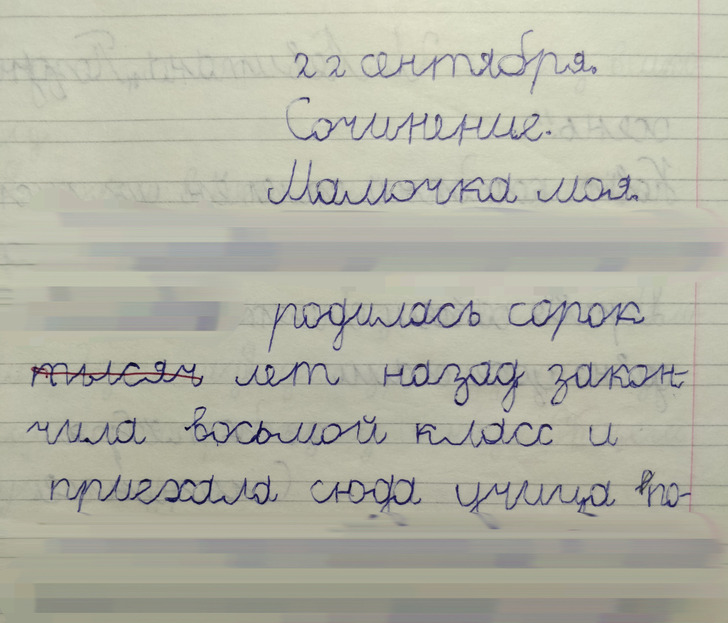 22 сентября.
Сочинение.
Мамочка моя.
родилась сорок
тысяч лет назад закон-
чила восьмой класс и
приехала сюда учица впо-